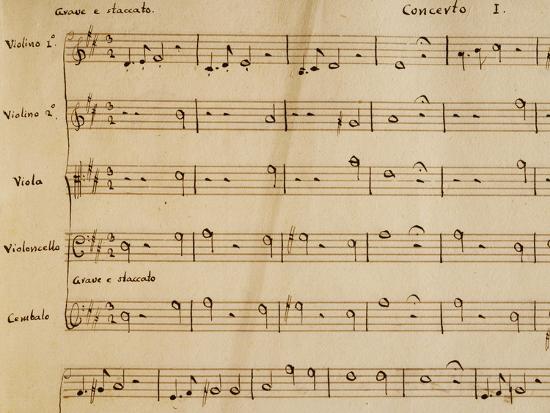 Grave e staccato. Concerto I.
Violino 1º.
3 2
Violino 2º.
3 2
Viola
3 2
Violoncello
3 2
Grave e staccato
Cembalo
3 2